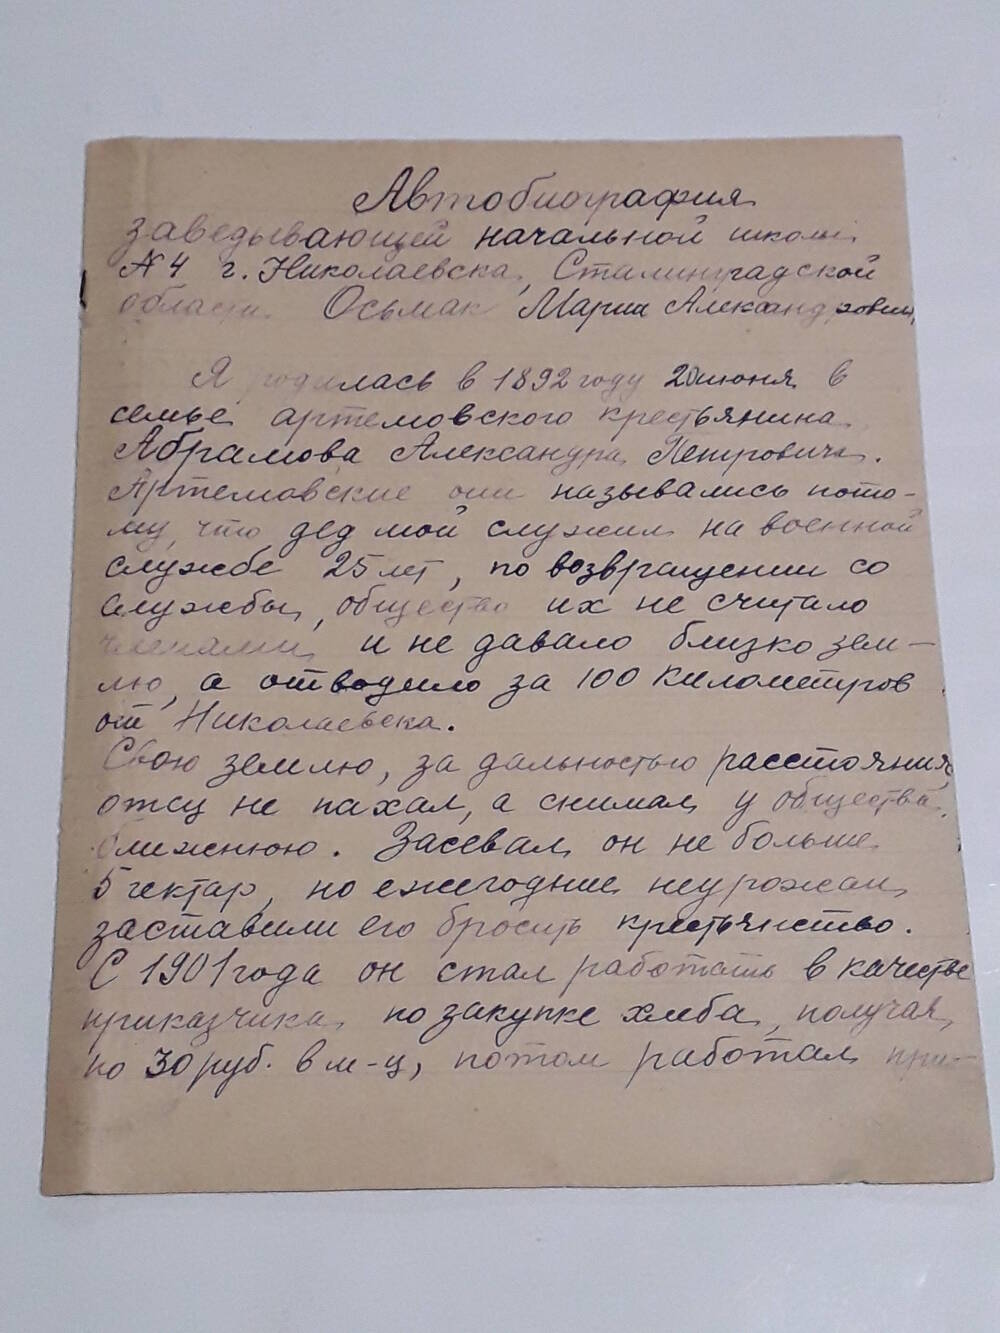 Автобиография
заведывающей начальной школы
№4 г. Николаевска, Сталинградской
области Осьмак Марии Александровны,
Я родилась в 1892 году 20 июня в
семье артемовского крестьянина
Абрамова Александра Петровича.
Артемовские они назывались пото-
му, что дед мой служил на военной
службе 25 лет, по возвращении со
службы, общество их не считало
членами, и не давало близко зем-
лю, а отводило за 100 километров
от Николаевска.
Свою землю, за дальностью расстояния,
отец не пахал, а снимал у общества
ближнюю. Засевал он не больше
5 гектар, но ежегодние неурожаи
заставили его бросить крестьянство.
С 1901 года он стал работать в качестве
приказчика по закупке хлеба, получая
по 30 руб. в м-ц, потом работал при-